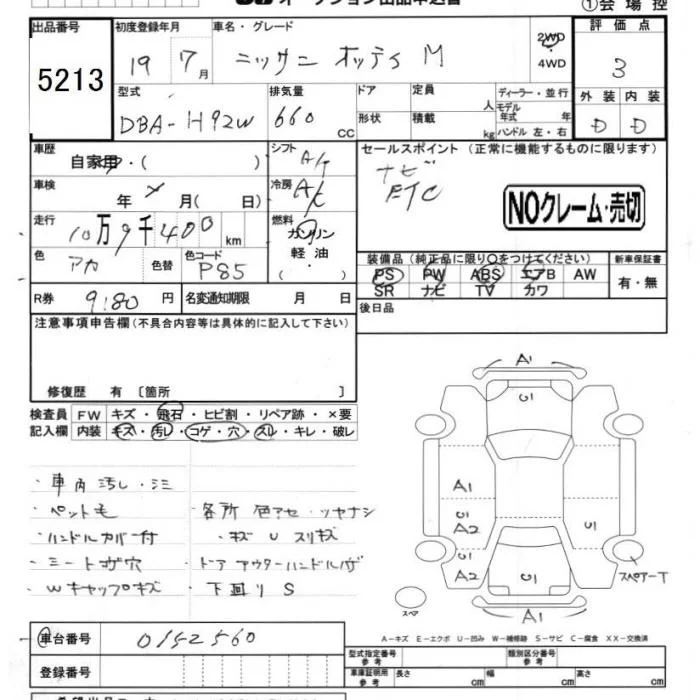 オークション出品申込書
①会場控
出品番号
5213
初度登録年月
19 7月
車名・グレード
ニッサン オッティ M
2WD
4WD
評価点
3
型式
DBA-H92W
排気量
660 CC
ドア
形状
定員 人
積載 kg
ディーラー・並行
モデル年式 年
ハンドル 左・右
外装 内装
D D
車歴
自家用・( )
シフト
A/T
車検
年 月( 日)
冷房
A/C
走行
10万9千400 km
燃料
ガソリン
軽油・
( )
色
アカ
色替
色コード
P85
R券
9180 円
名変通知期限 月 日
セールスポイント (正常に機能するものに限ります)
ナビ
ETC
NOクレーム・売切
装備品(純正品に限り○をつけてください)
PS PW ABS エアB AW
SR ナビ TV カワ
新車保証書
有・無
後日品
注意事項申告欄(不具合内容等は具体的に記入して下さい)
修復歴 有 〔箇所 〕
検査員 FW キズ・飛石・ヒビ割・リペア跡・×要
記入欄 内装 キズ・汚レ・コゲ・穴・スレ・キレ・破レ
・車内汚し・シミ
・ペット毛
・ハンドルカバー付
・シートコゲ穴
・Wキャップキズ
・各所 色アセ・ツヤナシ
・キズ U スリキズ
・ドアアウターハンドルハゲ
・下回り S
A1
A1
A2
A2
A1
スペアーT
スペア
A-キズ E-エクボ U-凹み W-補修跡 S-サビ C-腐食 XX-交換済
車台番号
0152560
登録番号
型式指定番号
参考
類別区分番号
参考
車庫証明用
参考
長さ cm
幅 cm
高さ cm